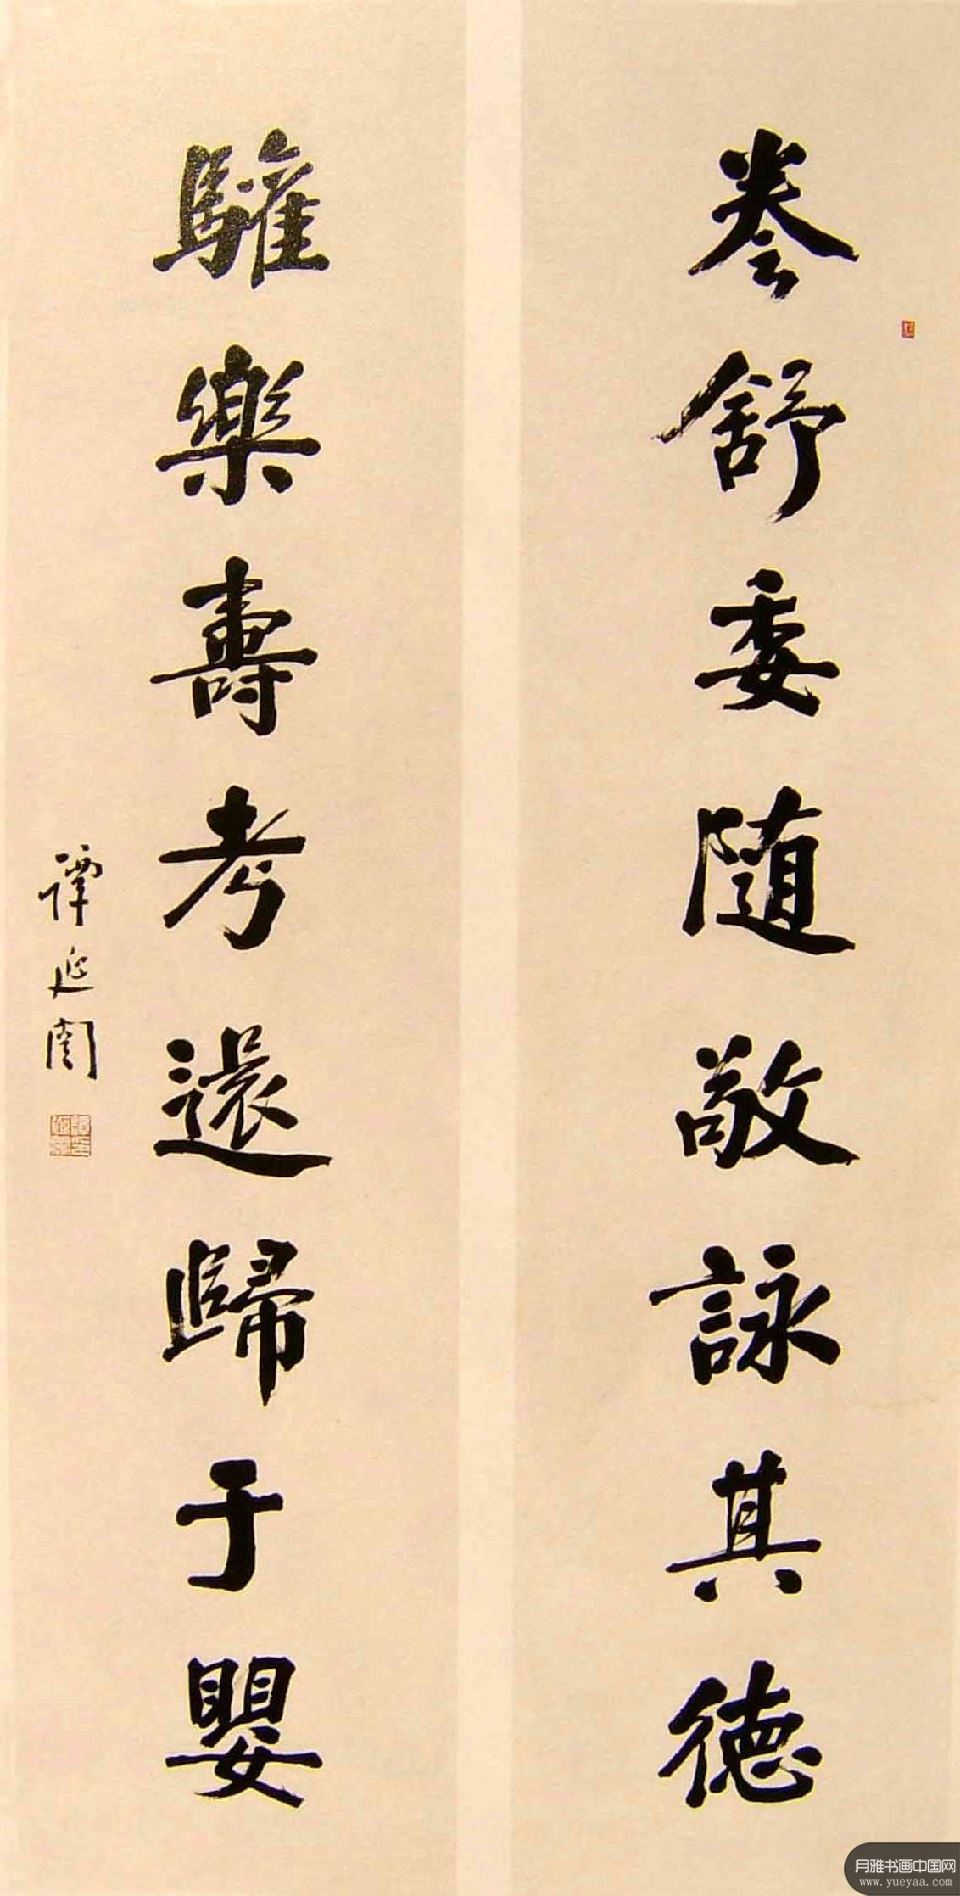 卷舒委随敬詠其德
驩樂壽考還歸于嬰
譚延闓
月雅书画中国网
www.yueyaa.com